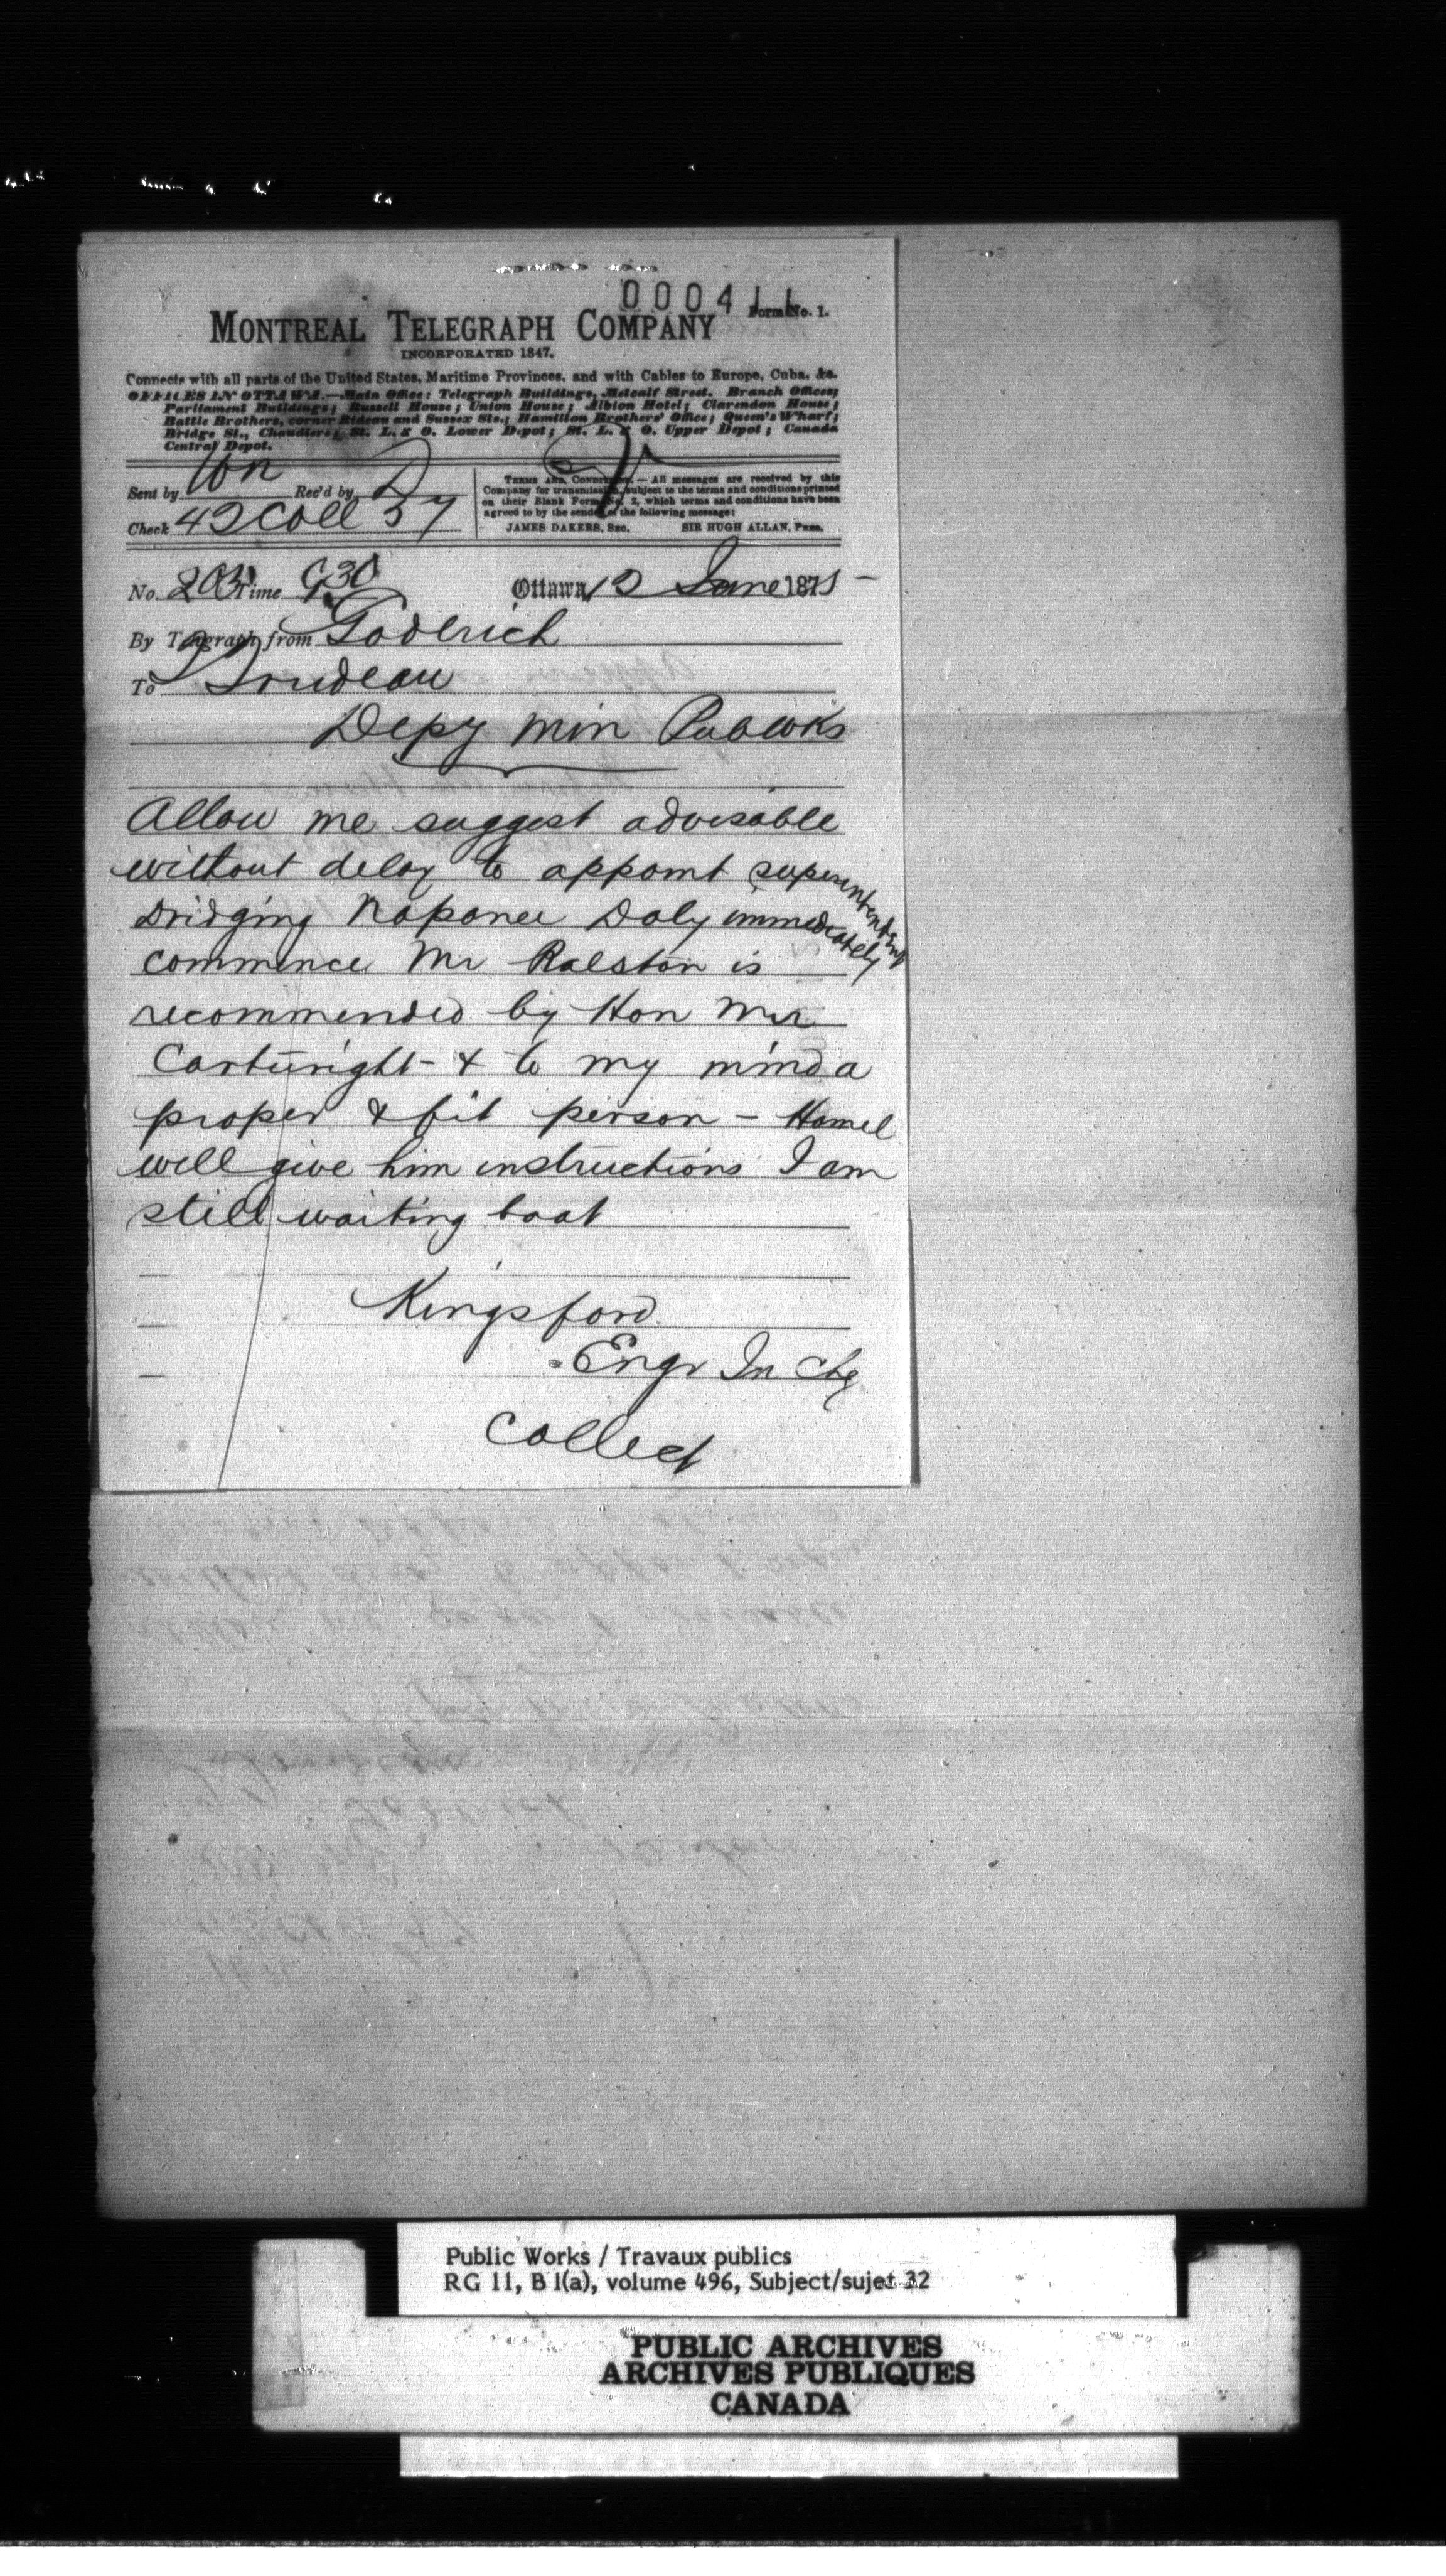 000411
Form No. 1.
MONTREAL TELEGRAPH COMPANY
INCORPORATED 1847.
Connects with all parts of the United States, Maritime Provinces, and with Cables to Europe, Cuba, &c.
OFFICES IN OTTAWA.—Main Office: Telegraph Buildings, Metcalf Street. Branch Offices;
Parliament Buildings; Russell House; Union House; Albion Hotel; Clarendon House;
Battle Brothers, corner Rideau and Sussex Sts.; Hamilton Brothers' Office; Queen's Wharf;
Bridge St., Chaudiere; St. L. & O. Lower Depot; St. L. & O. Upper Depot; Canada
Central Depot.
Sent by Rec'd by
Check 42 Coll
TERMS AND CONDITIONS.—All messages are received by this
Company for transmission, subject to the terms and conditions printed
on their Blank Form No. 2, which terms and conditions have been
agreed to by the sender of the following message:
JAMES DAKERS, Sec. SIR HUGH ALLAN, Pres.
No. 203 Time 930 Ottawa, 12 June 1875
By Telegraph from Goderich
To Trudeau
Depy Min Pub wks
Allow me suggest advisable
without delay to appoint superintending
Dridging Napanee Daly immediately
commence Mr Ralston is
recommended by Hon Mr
Cartwright - & to my mind a
proper & fit person - Hamel
will give him instructions I am
still waiting boat
Kingsford
Engr In Chg
Collect
Public Works / Travaux publics
RG 11, B 1(a), volume 496, Subject/sujet 32
PUBLIC ARCHIVES
ARCHIVES PUBLIQUES
CANADA